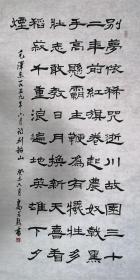 別夢依稀咒逝川故園三十
二年前紅旗捲起農奴戟黑
手高懸霸主鞭為有犧牲多
壯志敢教日月換新天喜看
稻菽千重浪遍地英雄下夕
煙
毛澤東一九五九年六月詩到韶山 六月 書